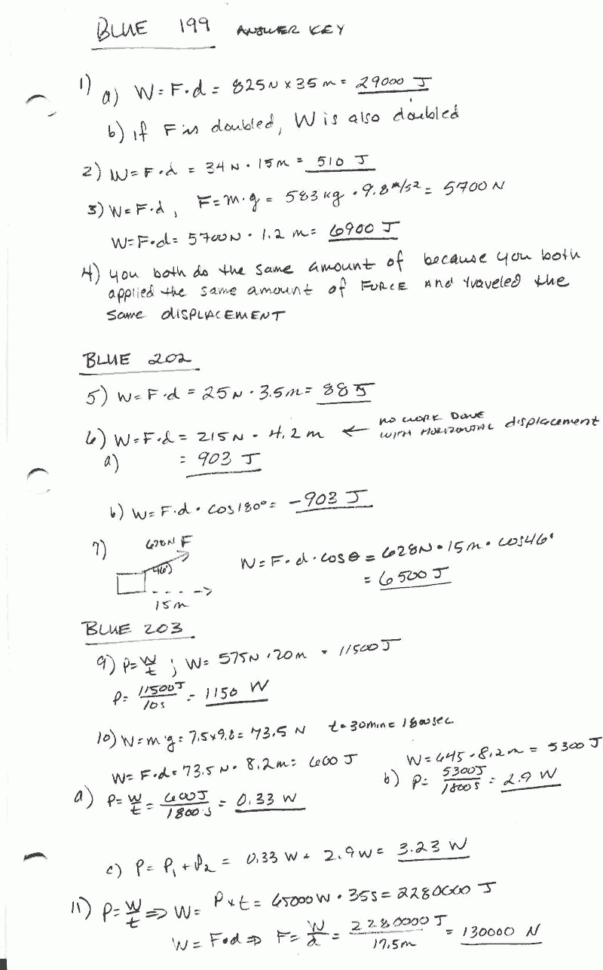 BLUE 199 ANSWER KEY
1) a) W = F·d = 825 N x 35 m = 29000 J
b) if F is doubled, W is also doubled
2) W = F·d = 34 N · 15 m = 510 J
3) W = F·d, F = m·g = 583 kg · 9.8 m/s² = 5700 N
W = F·d = 5700 N · 1.2 m = 6900 J
4) you both do the same amount of because you both
applied the same amount of FORCE and traveled the
same DISPLACEMENT
BLUE 202
5) W = F·d = 25 N · 3.5 m = 88 J
6) W = F·d = 215 N · 4.2 m ← NO WORK DONE
WITH HORIZONTAL displacement
a) = 903 J
b) W = F·d · cos 180° = -903 J
7) 628 N F
46°
15 m
W = F·d·cosθ = 628 N · 15 m · cos 46°
= 6500 J
BLUE 203
9) P = W/t ; W = 575 N · 20 m = 11500 J
P = 11500 J/10 s = 1150 W
10) W = m·g = 7.5 x 9.8 = 73.5 N t = 30 min = 1800 sec
W = F·d = 73.5 N · 8.2 m = 600 J
a) P = W/t = 600 J/1800 s = 0.33 W
W = 645 · 8.2 m = 5300 J
b) P = 5300 J/1800 s = 2.9 W
c) P = P₁ + P₂ = 0.33 W + 2.9 W = 3.23 W
11) P = W/t ⇒ W = P x t = 65000 W · 35 s = 2280000 J
W = F·d ⇒ F = W/d = 2280000 J/17.5 m = 130000 N